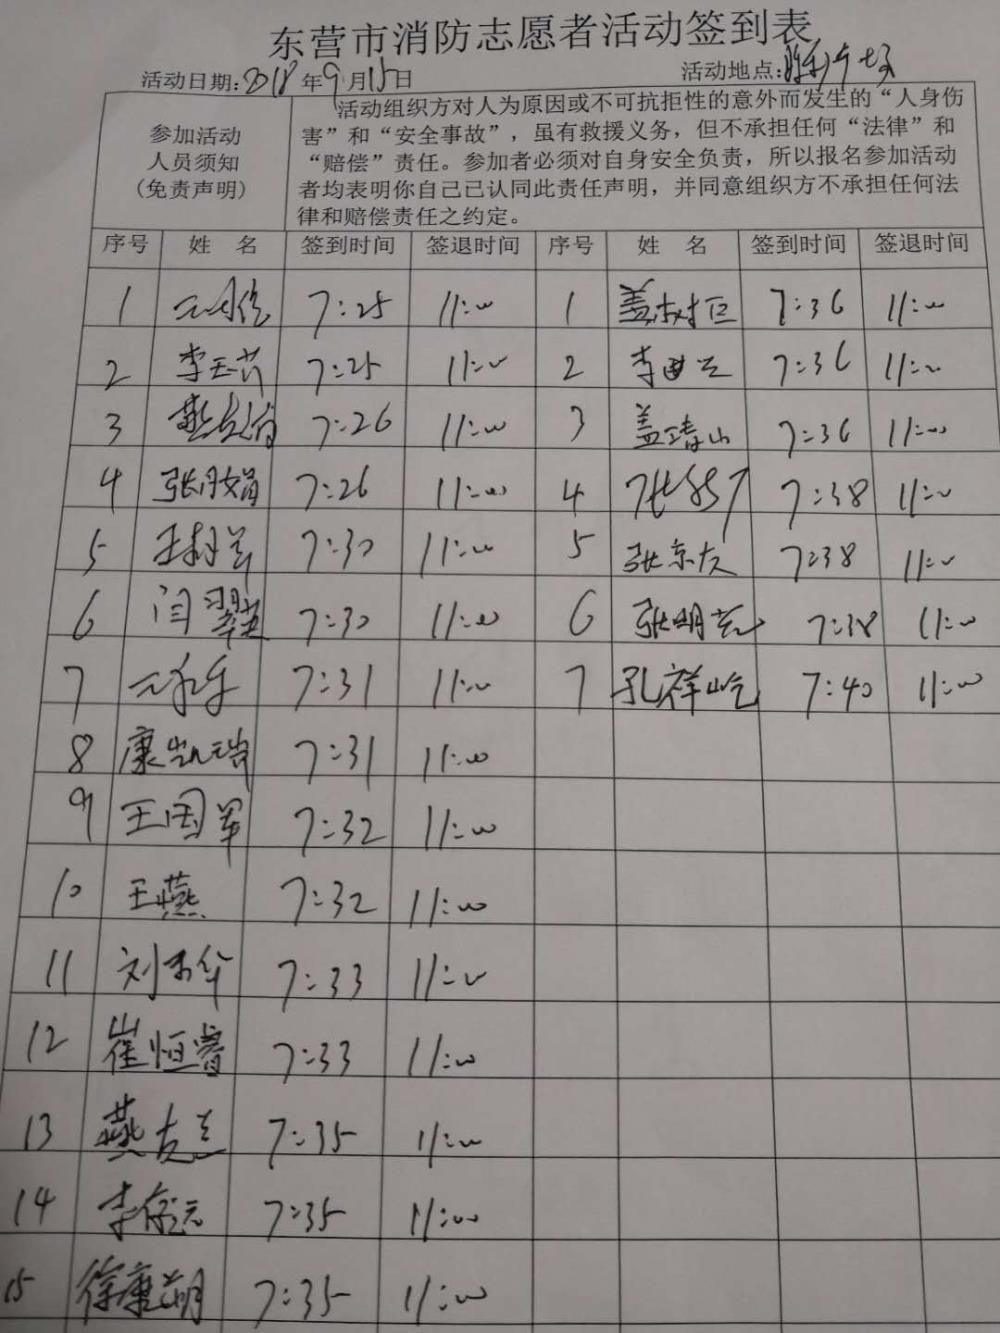 东营市消防志愿者活动签到表
活动日期:2018年9月15日 活动地点:
参加活动
人员须知
(免责声明)
活动组织方对人为原因或不可抗拒性的意外而发生的“人身伤
害”和“安全事故”，虽有救援义务，但不承担任何“法律”和
“赔偿”责任。参加者必须对自身安全负责，所以报名参加活动
者均表明你自己已认同此责任声明，并同意组织方不承担任何法
律和赔偿责任之约定。
序号 姓 名 签到时间 签退时间 序号 姓 名 签到时间 签退时间
1 7:25 11:00 1 盖树臣 7:36 11:00
2 李玉芳 7:25 11:00 2 7:36 11:00
3 7:26 11:00 3 盖靖山 7:36 11:00
4 张月娟 7:26 11:00 4 7:38 11:00
5 7:30 11:00 5 张京友 7:38 11:00
6 闫翠英 7:30 11:00 6 7:38 11:00
7 7:31 11:00 7 孔祥屹 7:40 11:00
8 康凯瑞 7:31 11:00
9 王国军 7:32 11:00
10 王燕 7:32 11:00
11 7:33 11:00
12 崔恒睿 7:33 11:00
13 7:35 11:00
14 7:35 11:00
15 徐康朔 7:35 11:00